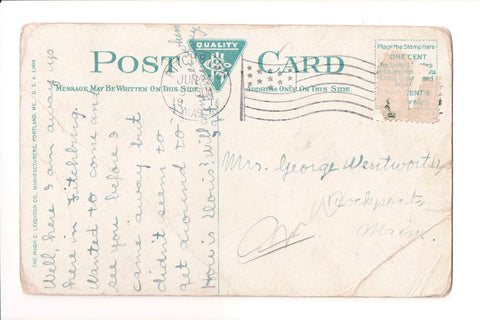 POST CARD
QUALITY
MESSAGE MAY BE WRITTEN ON THIS SIDE
ADDRESS ONLY ON THIS SIDE
Place the Stamp Here
ONE CENT
THE HUGH C. LEIGHTON CO., MANUFACTURERS, PORTLAND, ME., U.S.A.
Well, here I am away up
here in Fitchburg.
Wanted to come and
see you before I
came away but
didn't seem to
get around to
How is Doris? will
Mrs. George Wentworth
Rockport,
Maine
JUN
MASS